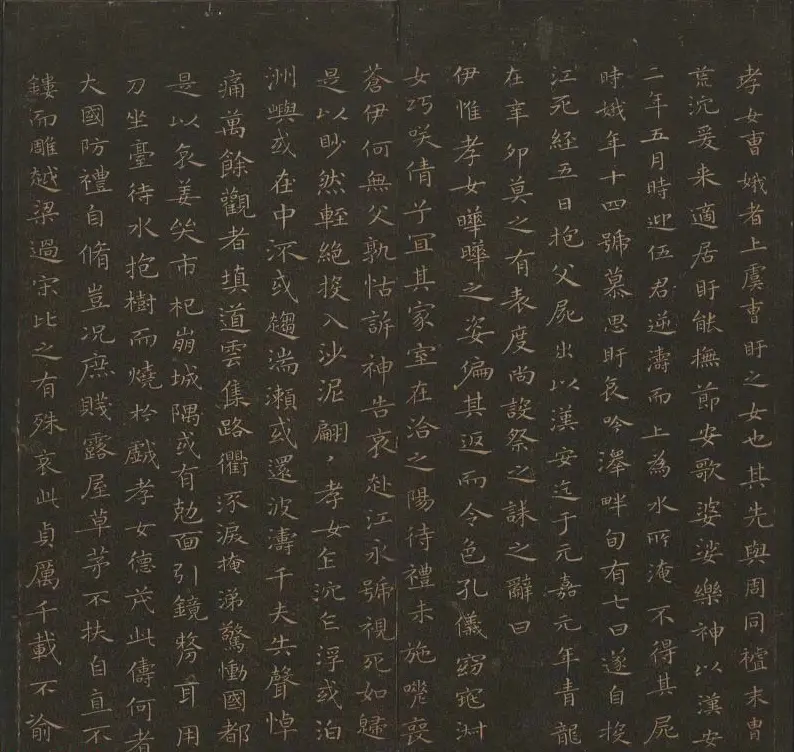 孝女曹娥者上虞曹盱之女也其先與周同祖末曹
荒沉爰来適居盱能撫節安歌婆娑樂神以漢安
二年五月時迎伍君逆濤而上為水所淹不得其屍
時娥年十四號慕思盱哀吟澤畔旬有七日遂自投
江死経五日抱父屍出以漢安迄于元嘉元年青龍
在辛卯莫之有表度尚設祭之誄之辭曰
伊惟孝女曄曄之姿偏其返而令色孔儀窈窕淑
女巧咲倩兮宜其家室在洽之陽待禮未施嗟喪
蒼伊何無父孰怙訴神告哀赴江永號視死如歸
是以眇然輕絶投入沙泥翩〻孝女乍沉乍浮或泊
洲嶼或在中流或趨湍瀬或還波濤千夫失聲悼
痛萬餘觀者填道雲集路衢流淚掩涕驚慟國都
是以哀姜哭市杞崩城隅或有尅面引鏡剺耳用
刀坐臺待水抱樹而燒於戲孝女德茂此儔何者
大國防禮自脩豈况庶賤露屋草茅不扶自直不
鏤而雕越梁過宋比之有殊哀此貞厲千載不渝